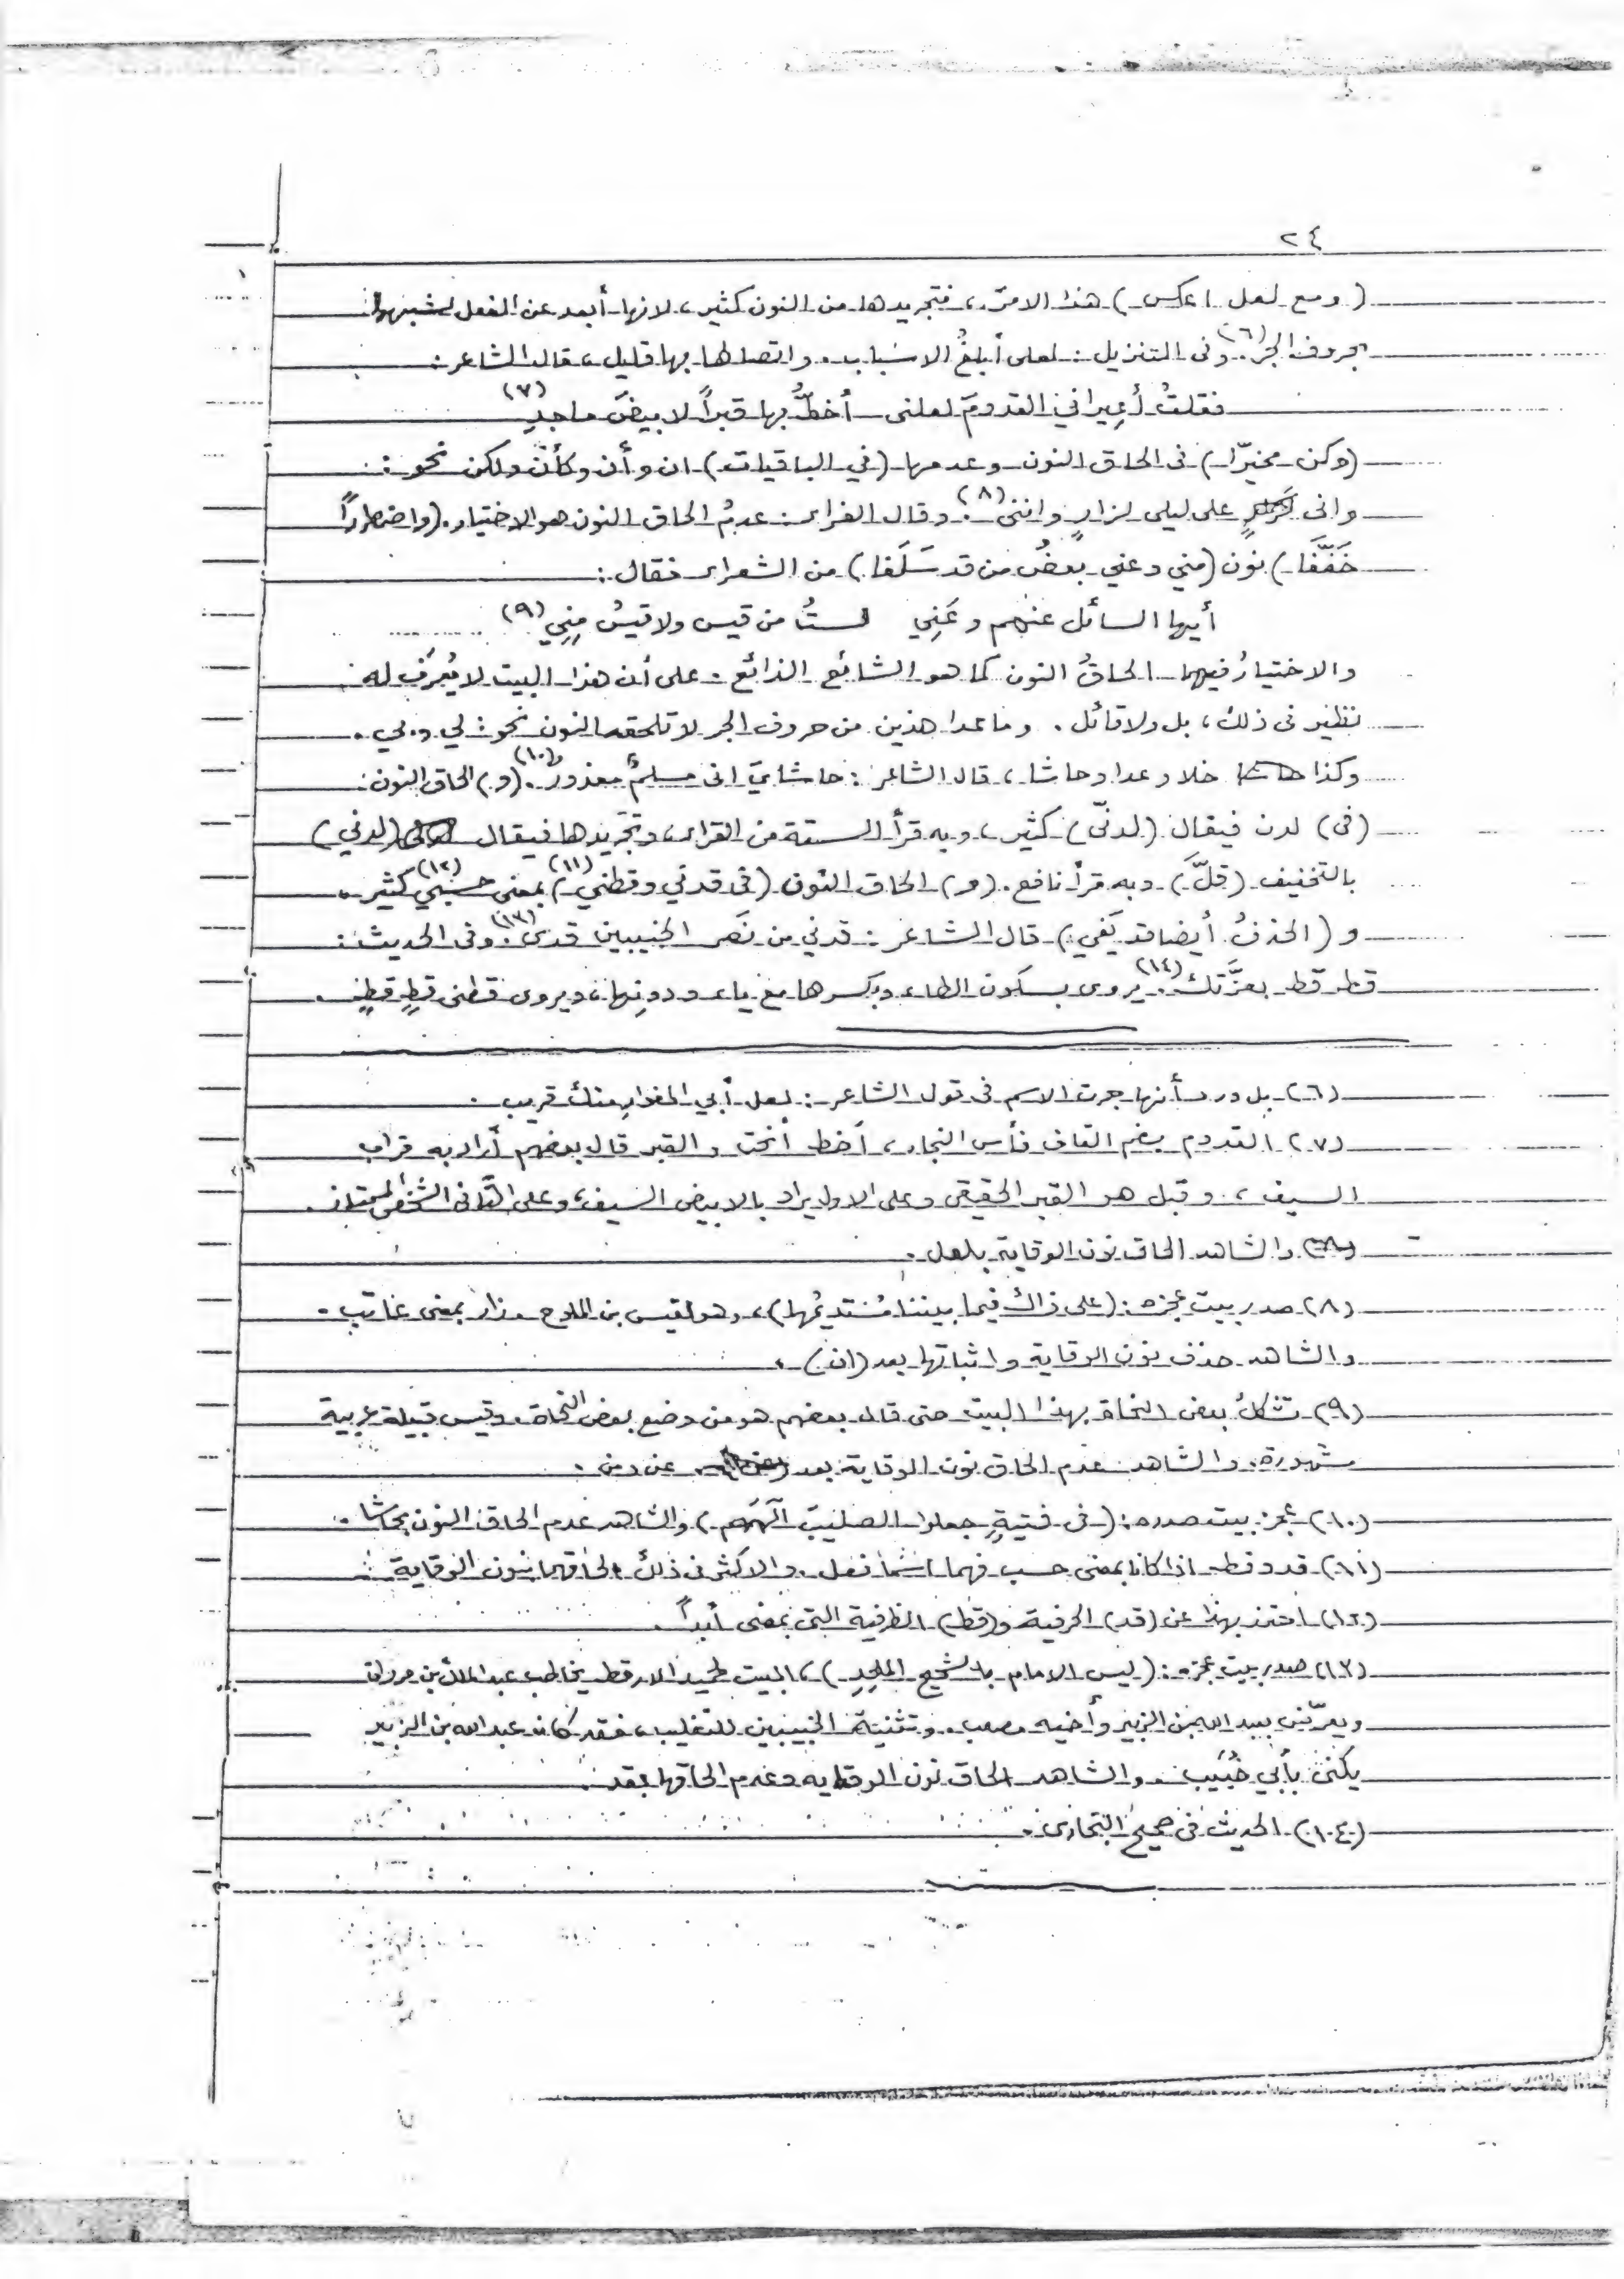 ٢٤
(ومع لعل اعكس) هذا الامرَ، فتجريدها من النون كثير، لانها أبعد عن الفعل لشبهها
بحروف الجر.(٦) وفى التنزيل: لعلى أبلغُ الاسباب. واتصالها بها قليل، قال الشاعر:
فقلتُ أعِيراني القدومَ لعلنى أخطُّ بها قبراً لابيضَ ماجدِ (٧)
(وكن مخيرّا) فى الحاق النون وعدمها (في الباقيات) ان وأن وكأن ولكن نحو:
وانى على ليلى لزارٍ واننى.(٨) وقال الفراء: عدمُ الحاق النون هو الاختيار. (واضطراراً
خَفّفَا) نون (مني وعني بعضُ من قد سَلَفا) من الشعراء فقال:
أيها السائل عنهم وعَنِي لستُ من قيس ولاقيسُ مِنِي (٩)
والاختيارُ فيهما الحاقُ النون كما هو الشائع الذائع. على أن هذا البيت لا يُعرَف له
نظير فى ذلك، بل ولا قائل. وما عدا هذين من حروف الجر لا تلحقه النون نحو: لي وبي.
وكذا خلا وعدا وحاشا، قال الشاعر: حاشايَ انى مسلمٌ معذورُ.(١٠) (و) الحاق النون
(فى) لدن فيقال (لدنّى) كثير، وبه قرأ الستة من القراء، وتجَريدها فيقال (لدني)
بالتخفيف (قلَّ) وبه قرأ نافع. (و) الحاق النون (فى قدني وقطني)(١١) بمعنى حسبي(١٢) كثير،
و (الحذفُ أيضا قد يَفي) قال الشاعر: قدني من نَصر الخبيبين قدى.(١٣) وفى الحديث:
قط قط بعزَّتك.(١٤) يروى بسكون الطاء وبكسرها مع ياء ودونها، ويروى قطنى قطِ قطٍ.
(٦) بل ورد أنها جرت الاسم فى قول الشاعر: لعل أبي المغوار منك قريب.
(٧) القدوم بضم القاف فأس النجار، أخط أنحت والقبر قال بعضهم أراد به قراب
السيف، وقيل هو القبر الحقيقى وعلى الاول يراد بالابيض السيف، وعلى الثانى الشخص الممتاز.
والشاهد الحاق نون الوقاية بلعل.
(٨) صدر بيت عجزه: (على ذاك فيما بيننا مُستديمُها)، وهو لقيس بن الملوح وزار بمعنى عاتب.
والشاهد حذف نون الوقاية واثباتها بعد (ان).
(٩) تشكك بعض النحاة بهذا البيت حتى قال بعضهم هو من وضع بعض النحاة، وقيس قبيلة عربية
مشهورة. والشاهد عدم الحاق نون الوقاية بعد عن ومن.
(١٠) عجز بيت صدره: (فى فتيةٍ جعلوا الصليبَ آلهَهم) والشاهد عدم الحاق النون بحاشا.
(١١) قد وقط اذا كانا بمعنى حسب فهما اسما فعل، والاكثر فى ذلك الحاقهما بنون الوقاية
(١٢) احترز بهذا عن (قد) الحرفية و(قط) الظرفية التى بمعنى أبداً.
(١٣) صدر بيت عجزه: (ليس الامام بالشحيح الملحِدِ)، البيت لحميد الارقط يخاطب عبد الملك بن مروان
ويعرّض بعبد الله بن الزبير وأخيه مصعب. وتثنية الخبيبين للتغليب، فقد كان عبد الله بن الزبير
يكنى بأبي خُبَيب. والشاهد الحاق نون الوقايه وعدم الحاقها بقد.
(١٤) الحديث فى صحيح البخارى.